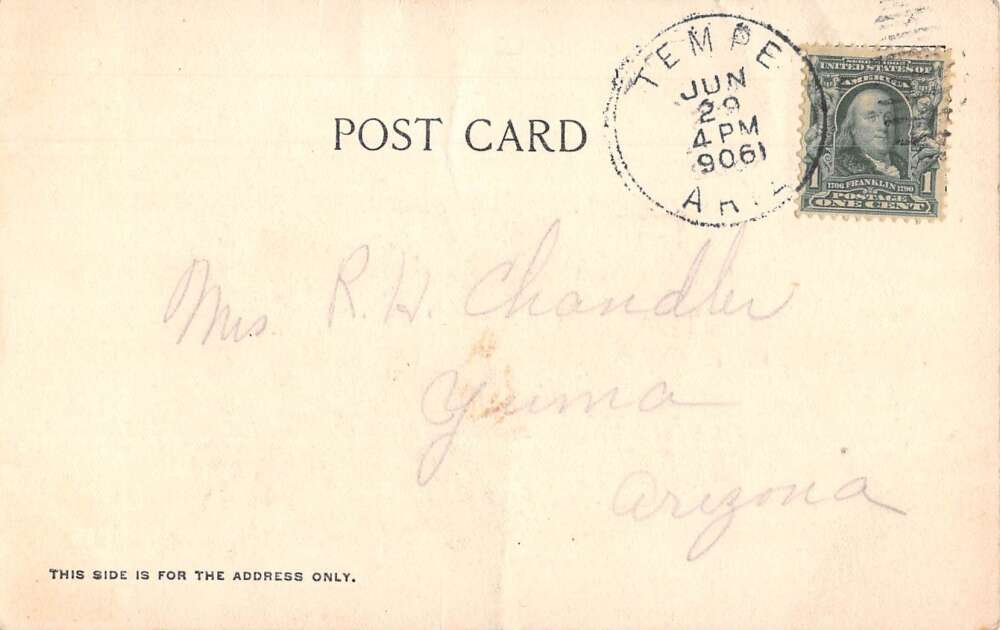 TEMPE
JUN
29
4 PM
9061
ARIZ
SERIES 1902
UNITED STATES OF
AMERICA
1706 FRANKLIN 1790
1 1
POSTAGE
ONE CENT
POST CARD
Mrs. R. H. Chandler
Yuma
Arizona
THIS SIDE IS FOR THE ADDRESS ONLY.